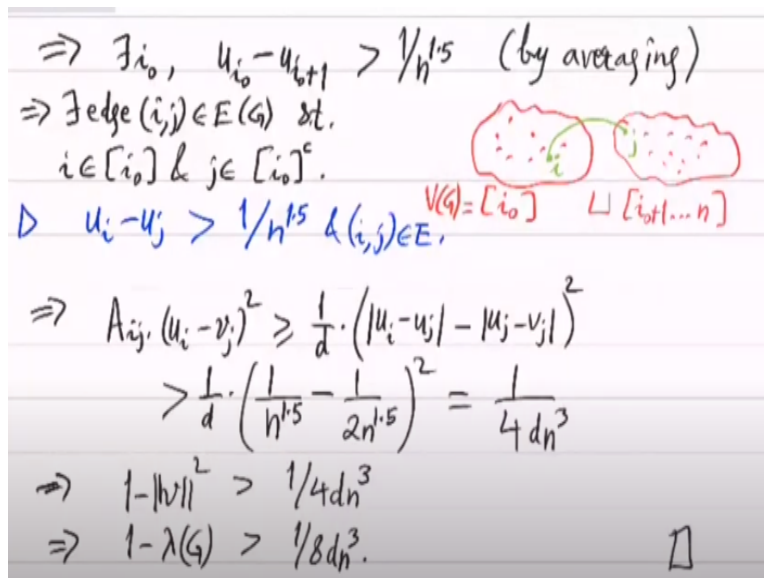 ⇒ ∃i₀, u_{i₀} - u_{i₀+1} > 1/n^{1.5} (by averaging)
⇒ ∃ edge (i,j) ∈ E(G) s.t.
i ∈ [i₀] & j ∈ [i₀]ᶜ.
i
j
V(G) = [i₀] ⊔ [i₀+1...n]
▷ u_i - u_j > 1/n^{1.5} & (i,j) ∈ E.
⇒ A_{ij}·(u_i - v_j)² ≥ 1/d · (|u_i - u_j| - |u_j - v_j|)²
> 1/d · (1/n^{1.5} - 1/2n^{1.5})² = 1/4dn³
⇒ 1 - ||v||² > 1/4dn³
⇒ 1 - λ(G) > 1/8dn³. □